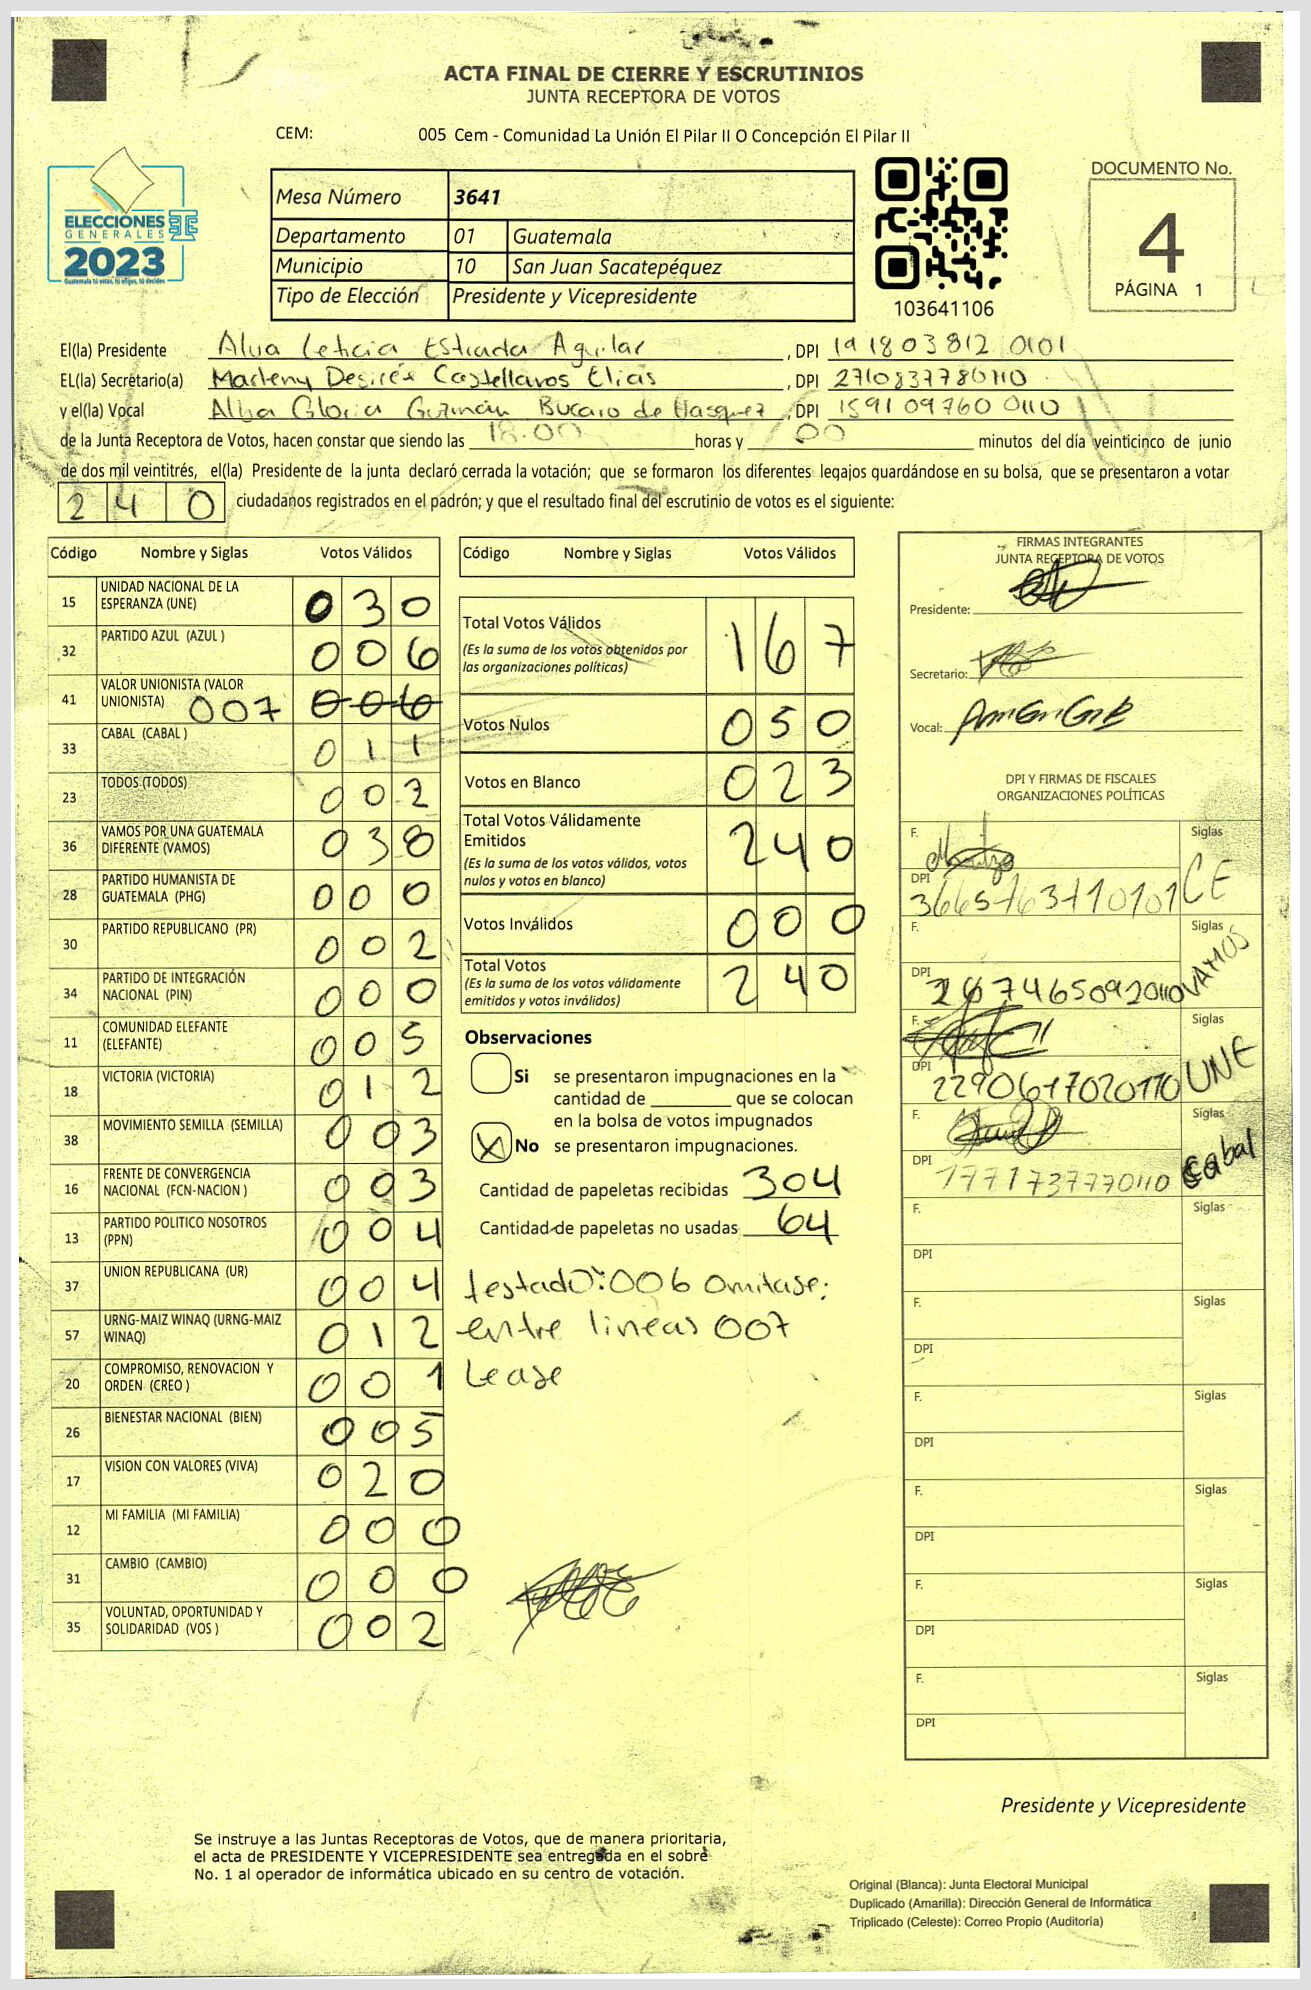 ACTA FINAL DE CIERRE Y ESCRUTINIOS
JUNTA RECEPTORA DE VOTOS
CEM: 005 Cem - Comunidad La Unión El Pilar II O Concepción El Pilar II
ELECCIONES
GENERALES
2023
Guatemala tú votas, tú eliges, tú decides
Mesa Número 3641
Departamento 01 Guatemala
Municipio 10 San Juan Sacatepéquez
Tipo de Elección Presidente y Vicepresidente
103641106
DOCUMENTO No.
4
PÁGINA 1
El(la) Presidente Alva Leticia Estrada Aguilar, DPI 191803812 0101
EL(la) Secretario(a) Marleny Desireé Castellanos Elias, DPI 2710837780110
y el(la) Vocal Alba Gloria Guzmán Bucaro de Vasquez, DPI 159109760 0110
de la Junta Receptora de Votos, hacen constar que siendo las 18:00 horas y 00 minutos del día veinticinco de junio
de dos mil veintitrés, el(la) Presidente de la junta declaró cerrada la votación; que se formaron los diferentes legajos quardándose en su bolsa, que se presentaron a votar
240 ciudadanos registrados en el padrón; y que el resultado final del escrutinio de votos es el siguiente:
Código Nombre y Siglas Votos Válidos
15 UNIDAD NACIONAL DE LA ESPERANZA (UNE) 030
32 PARTIDO AZUL (AZUL ) 006
41 VALOR UNIONISTA (VALOR UNIONISTA) 007 006
33 CABAL (CABAL ) 011
23 TODOS (TODOS) 002
36 VAMOS POR UNA GUATEMALA DIFERENTE (VAMOS) 038
28 PARTIDO HUMANISTA DE GUATEMALA (PHG) 000
30 PARTIDO REPUBLICANO (PR) 002
34 PARTIDO DE INTEGRACIÓN NACIONAL (PIN) 000
11 COMUNIDAD ELEFANTE (ELEFANTE) 005
18 VICTORIA (VICTORIA) 012
38 MOVIMIENTO SEMILLA (SEMILLA) 003
16 FRENTE DE CONVERGENCIA NACIONAL (FCN-NACION ) 003
13 PARTIDO POLITICO NOSOTROS (PPN) 004
37 UNION REPUBLICANA (UR) 004
57 URNG-MAIZ WINAQ (URNG-MAIZ WINAQ) 012
20 COMPROMISO, RENOVACION Y ORDEN (CREO ) 001
26 BIENESTAR NACIONAL (BIEN) 005
17 VISION CON VALORES (VIVA) 020
12 MI FAMILIA (MI FAMILIA) 000
31 CAMBIO (CAMBIO) 000
35 VOLUNTAD, OPORTUNIDAD Y SOLIDARIDAD (VOS ) 002
Código Nombre y Siglas Votos Válidos
Total Votos Válidos 167
(Es la suma de los votos obtenidos por
las organizaciones políticas)
Votos Nulos 050
Votos en Blanco 023
Total Votos Válidamente
Emitidos 240
(Es la suma de los votos válidos, votos
nulos y votos en blanco)
Votos Inválidos 000
Total Votos 240
(Es la suma de los votos válidamente
emitidos y votos inválidos)
Observaciones
Si se presentaron impugnaciones en la
cantidad de ________ que se colocan
en la bolsa de votos impugnados
X No se presentaron impugnaciones.
Cantidad de papeletas recibidas 304
Cantidad de papeletas no usadas 64
testado: 006 omitase;
entre lineas 007
Lease
FIRMAS INTEGRANTES
JUNTA RECEPTORA DE VOTOS
Presidente:
Secretario:
Vocal:
DPI Y FIRMAS DE FISCALES
ORGANIZACIONES POLÍTICAS
F. Siglas
DPI CE
F. Siglas
DPI 2874650920110 VAMOS
F. Siglas
DPI 2290617020110 UNE
F. Siglas
DPI 1771737770110 cabal
F. Siglas
DPI
F. Siglas
DPI
F. Siglas
DPI
F. Siglas
DPI
F. Siglas
DPI
F. Siglas
DPI
Presidente y Vicepresidente
Se instruye a las Juntas Receptoras de Votos, que de manera prioritaria,
el acta de PRESIDENTE Y VICEPRESIDENTE sea entregada en el sobre
No. 1 al operador de informática ubicado en su centro de votación.
Original (Blanca): Junta Electoral Municipal
Duplicado (Amarilla): Dirección General de Informática
Triplicado (Celeste): Correo Propio (Auditoría)